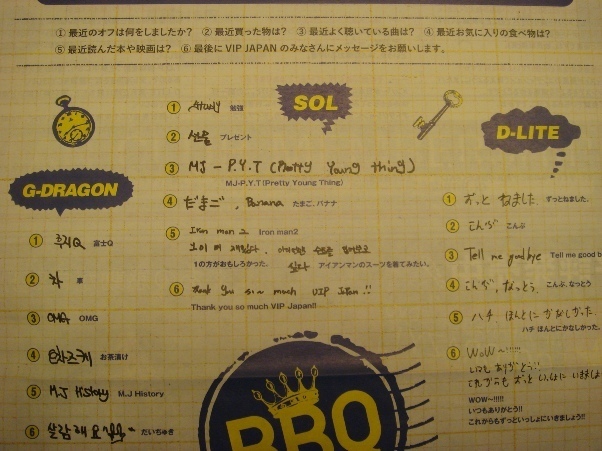 ① 最近のオフは何をしましたか? ② 最近買った物は? ③ 最近よく聴いている曲は? ④ 最近お気に入りの食べ物は?
⑤ 最近読んだ本や映画は? ⑥ 最後に VIP JAPAN のみなさんにメッセージをお願いします。
G-DRAGON
① 후지Q 富士Q
② 차 車
③ OMG OMG
④ 오차즈케 お茶漬け
⑤ M.J History M.J History
⑥ 사랑해요 だいちゅき
SOL
① study 勉強
② 선물 プレゼント
③ MJ - P.Y.T (Pretty Young thing)
MJ-P.Y.T(Pretty Young Thing)
④ だまご, Banana たまご、バナナ
⑤ Iron man 2 Iron man2
1이 더 재밌다. 아이언맨 수트를 입어보고
1の方がおもしろかった。 싶다 アイアンマンのスーツを着てみたい。
⑥ Thank you so much VIP Japan!!
Thank you so much VIP Japan!!
D-LITE
① ずっと ねました ずっとねました。
② こんぶ こんぶ
③ Tell me goodbye Tell me good b
④ こんぶ, なっとう こんぶ、なっとう
⑤ ハチ. ほんとに かなしかった.
ハチ ほんとにかなしかった。
⑥ WoW~!!!!!
いつも ありがとう!!
これからも ずっと いっしょに いきましょ
WOW~!!!!
いつもありがとう!!
これからもずっといっしょにいきましょう!!
BBQ